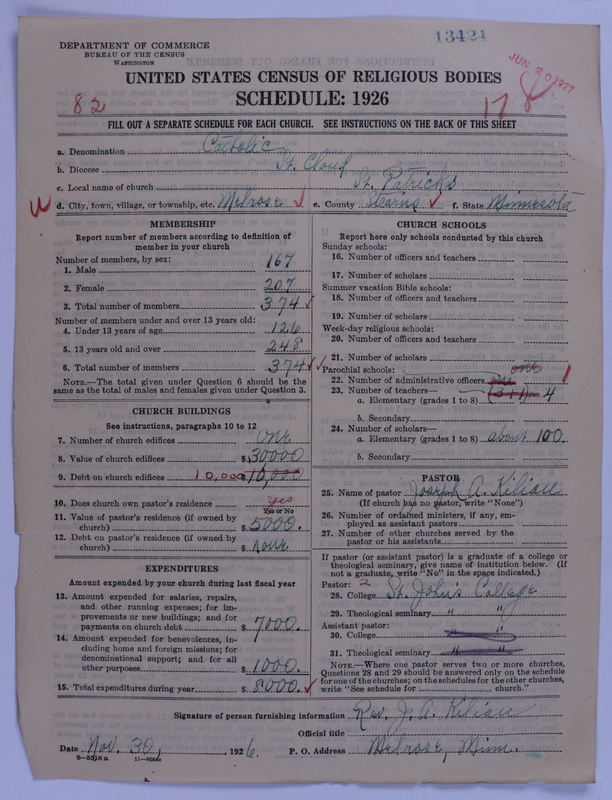 13424
DEPARTMENT OF COMMERCE
BUREAU OF THE CENSUS
WASHINGTON
JUN 20 1927
UNITED STATES CENSUS OF RELIGIOUS BODIES
SCHEDULE: 1926
82
178
FILL OUT A SEPARATE SCHEDULE FOR EACH CHURCH. SEE INSTRUCTIONS ON THE BACK OF THIS SHEET
a. Denomination Catholic
b. Diocese St. Cloud
c. Local name of church St. Patricks
d. City, town, village, or township, etc. Melrose e. County Stearns f. State Minnesota
MEMBERSHIP
Report number of members according to definition of
member in your church
Number of members, by sex:
1. Male 167
2. Female 207
3. Total number of members 374
Number of members under and over 13 years old:
4. Under 13 years of age 126
5. 13 years old and over 248
6. Total number of members 374
NOTE.—The total given under Question 6 should be
same as the total of males and females given under Question 3.
CHURCH BUILDINGS
See instructions, paragraphs 10 to 12
7. Number of church edifices One
8. Value of church edifices $30000
9. Debt on church edifices 10,000 $10,000
10. Does church own pastor's residence yes
Yes or No
11. Value of pastor's residence (if owned by
church) $5000.
12. Debt on pastor's residence (if owned by
church) $None
EXPENDITURES
Amount expended by your church during last fiscal year
13. Amount expended for salaries, repairs,
and other running expenses; for im-
provements or new buildings; and for
payments on church debt $7000.
14. Amount expended for benevolences, in-
cluding home and foreign missions; for
denominational support; and for all
other purposes $1000.
15. Total expenditures during year $8000.
CHURCH SCHOOLS
Report here only schools conducted by this church
Sunday schools:
16. Number of officers and teachers
17. Number of scholars
Summer vacation Bible schools:
18. Number of officers and teachers
19. Number of scholars
Week-day religious schools:
20. Number of officers and teachers
21. Number of scholars
Parochial schools: one
22. Number of administrative officers one
23. Number of teachers—
a. Elementary (grades 1 to 8) (3+1) 4
b. Secondary
24. Number of scholars—
a. Elementary (grades 1 to 8) about 100.
b. Secondary
PASTOR
25. Name of pastor Joseph A. Kilian
(If church has no pastor, write "None")
26. Number of ordained ministers, if any, em-
ployed as assistant pastors
27. Number of other churches served by the
pastor or his assistants
If pastor (or assistant pastor) is a graduate of a college or
theological seminary, give name of institution below. (If
not a graduate, write "No" in the space indicated.)
Pastor: 2
28. College St. Johns College
29. Theological seminary " "
Assistant pastor:
30. College
31. Theological seminary " "
NOTE.—Where one pastor serves two or more churches,
Questions 28 and 29 should be answered only on the schedule
for one of the churches; on the schedules for the other churches,
write "See schedule for church."
Signature of person furnishing information Rev. J. A. Kilian
Official title
Date Nov. 30, 1926. P. O. Address Melrose, Minn.